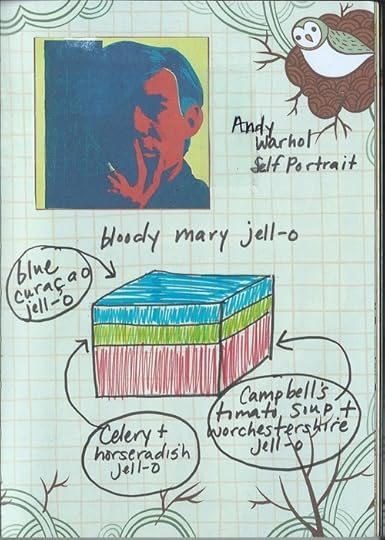 Andy
Warhol
Self Portrait
bloody mary jell-o
blue
curaçao
jell-o
Celery +
horseradish
jell-o
Campbell's
tomato soup +
worchestershire
jell-o